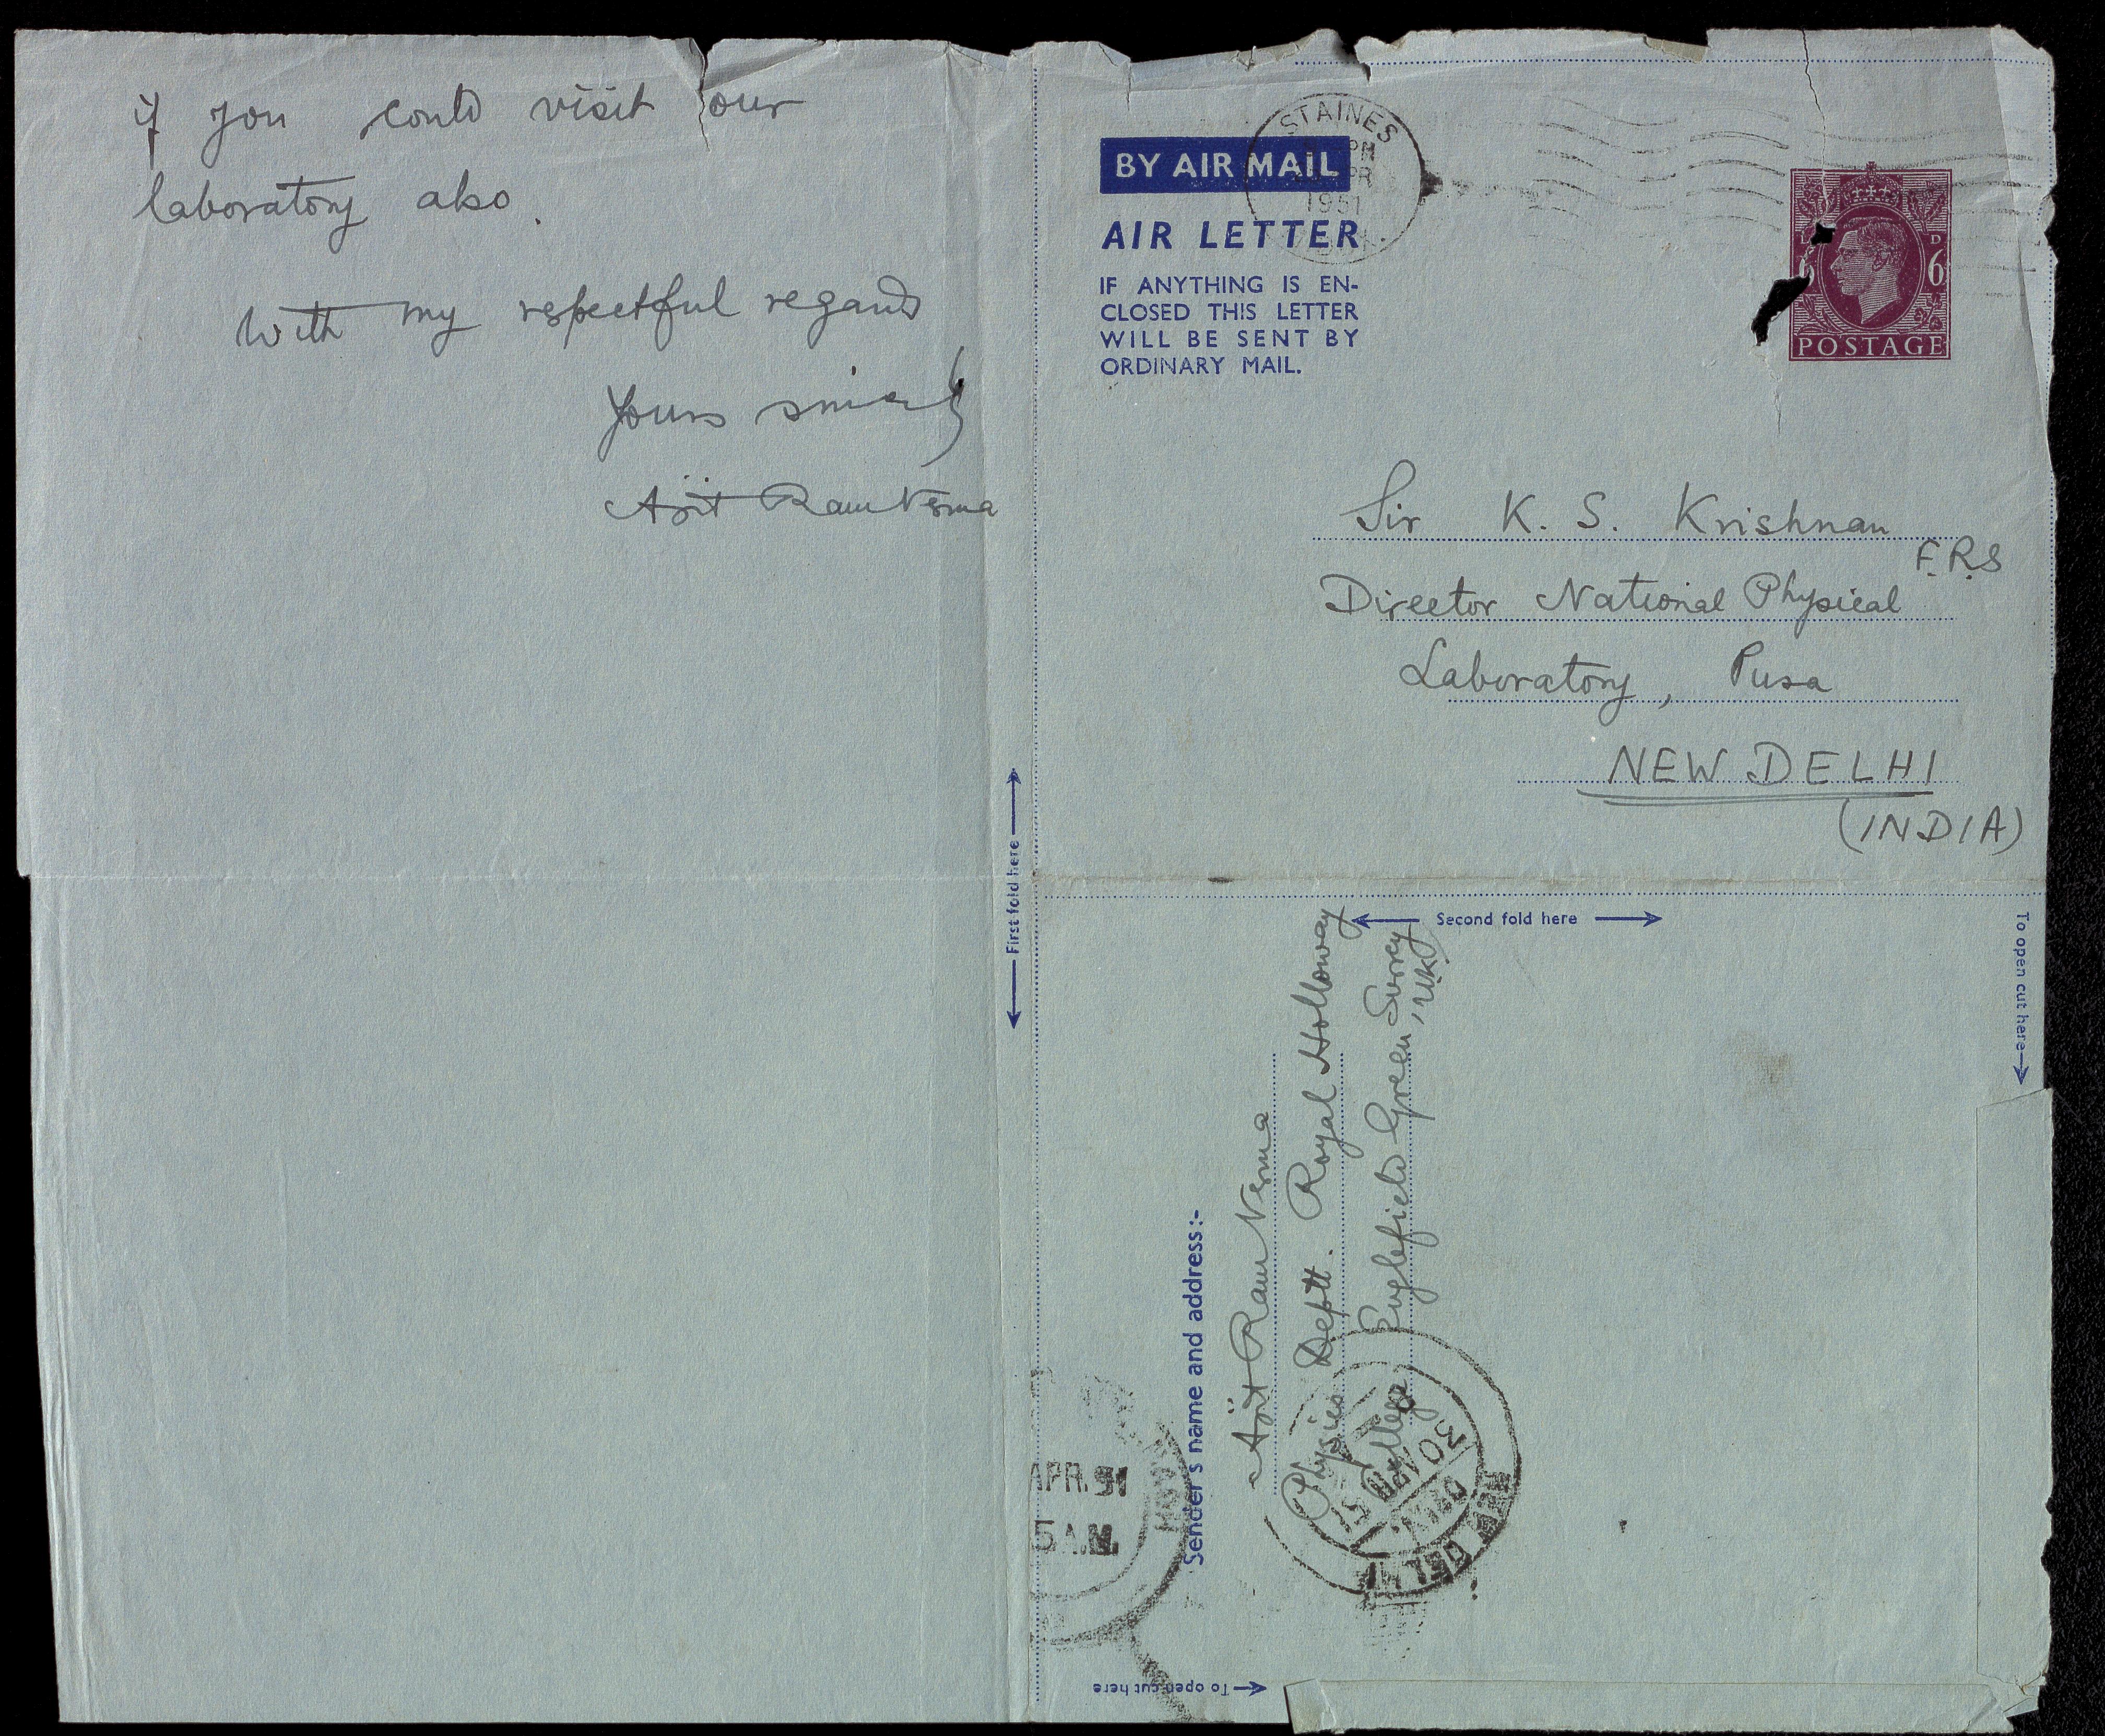 if you could visit our
laboratory also.
With my respectful regards
Yours sincerely
Ajit Ram Verma
STAINES
PM
APR
1951
BY AIR MAIL
AIR LETTER
IF ANYTHING IS EN-
CLOSED THIS LETTER
WILL BE SENT BY
ORDINARY MAIL.
6
D
POSTAGE
Sir K. S. Krishnan
F.R.S
Director National Physical
Laboratory, Pusa
NEW DELHI
(INDIA)
← First fold here →
← Second fold here →
To open cut here →
Sender's name and address:-
Ajit Ram Verma
Physics Deptt. Royal Holloway
College Englefield Green, Surrey
, UK
APR. 51
5 A.M.
NEW DELHI
DELY.
30 APR 51
To open cut here →